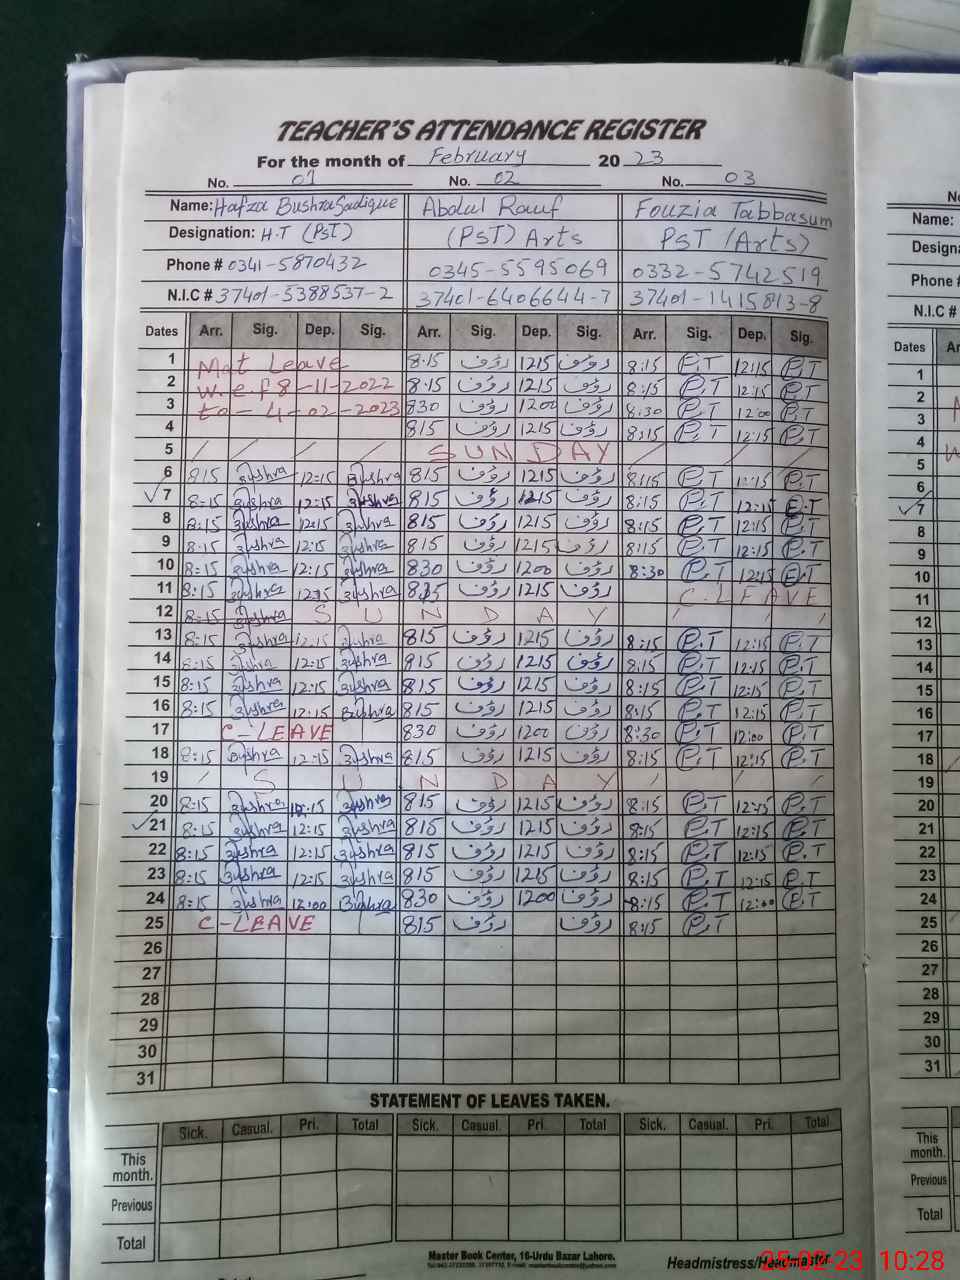 TEACHER'S ATTENDANCE REGISTER
For the month of February 20 23
No. 01 No. 02 No. 03
Name: Hafza Bushra Sadique Abdul Rauf Fouzia Tabbasum
Designation: H.T (PST) (PST) Arts PST (Arts)
Phone # 0341-5870432 0345-5595069 0332-5742519
N.I.C # 37401-5388537-2 37401-6406644-7 37401-1415813-8
Dates Arr. Sig. Dep. Sig. Arr. Sig. Dep. Sig. Arr. Sig. Dep. Sig.
1 Mat Leave 8:15 رؤف 1215 رؤف 8:15 P.T 12:15 P.T
2 w.e.f 8-11-2022 8:15 رؤف 1215 رؤف 8:15 P.T 12:15 P.T
3 to- 4-02-2023 830 رؤف 1200 رؤف 8:30 P.T 12:00 P.T
4 815 رؤف 1215 رؤف 8:15 P.T 12:15 P.T
5 SUNDAY
6 815 Bushra 12:15 Bushra 815 رؤف 1215 رؤف 8:15 P.T 12:15 P.T
7 8:15 Bushra 12:15 Bushra 815 رؤف 1215 رؤف 8:15 P.T 12:15 P.T
8 8:15 Bushra 12:15 Bushra 815 رؤف 1215 رؤف 8:15 P.T 12:15 P.T
9 8:15 Bushra 12:15 Bushra 815 رؤف 1215 رؤف 8:15 P.T 12:15 P.T
10 8:15 Bushra 12:15 Bushra 830 رؤف 1200 رؤف 8:30 P.T 12:15 P.T
11 8:15 Bushra 12:15 Bushra 815 رؤف 1215 رؤف C-LEAVE
12 8:15 Bushra SUNDAY
13 8:15 Bushra 12:15 Bushra 815 رؤف 1215 رؤف 8:15 P.T 12:15 P.T
14 8:15 Bushra 12:15 Bushra 915 رؤف 1215 رؤف 8:15 P.T 12:15 P.T
15 8:15 Bushra 12:15 Bushra 815 رؤف 1215 رؤف 8:15 P.T 12:15 P.T
16 8:15 Bushra 12:15 Bushra 815 رؤف 1215 رؤف 8:15 P.T 12:15 P.T
17 C-LEAVE 830 رؤف 1200 رؤف 8:30 P.T 12:00 P.T
18 8:15 Bushra 12:15 Bushra 815 رؤف 1215 رؤف 8:15 P.T 12:15 P.T
19 SUNDAY
20 8:15 Bushra 12:15 Bushra 815 رؤف 1215 رؤف 8:15 P.T 12:15 P.T
21 8:15 Bushra 12:15 Bushra 815 رؤف 1215 رؤف 8:15 P.T 12:15 P.T
22 8:15 Bushra 12:15 Bushra 815 رؤف 1215 رؤف 8:15 P.T 12:15 P.T
23 8:15 Bushra 12:15 Bushra 815 رؤف 1215 رؤف 8:15 P.T 12:15 P.T
24 8:15 Bushra 12:00 Bushra 830 رؤف 1200 رؤف 8:15 P.T 12:00 P.T
25 C-LEAVE 815 رؤف رؤف 8:15 P.T
26
27
28
29
30
31
STATEMENT OF LEAVES TAKEN.
Sick. Casual. Pri. Total Sick. Casual. Pri. Total Sick. Casual. Pri. Total
This month.
Previous
Total
Master Book Center, 16-Urdu Bazar Lahore.
Headmistress/Headmaster
25-02-23 10:28
No
Name:
Design
Phone #
N.I.C #
Dates Ar
1
2
3
4
5
6
7
8
9
10
11
12
13
14
15
16
17
18
19
20
21
22
23
24
25
26
27
28
29
30
31
This month.
Previous
Total